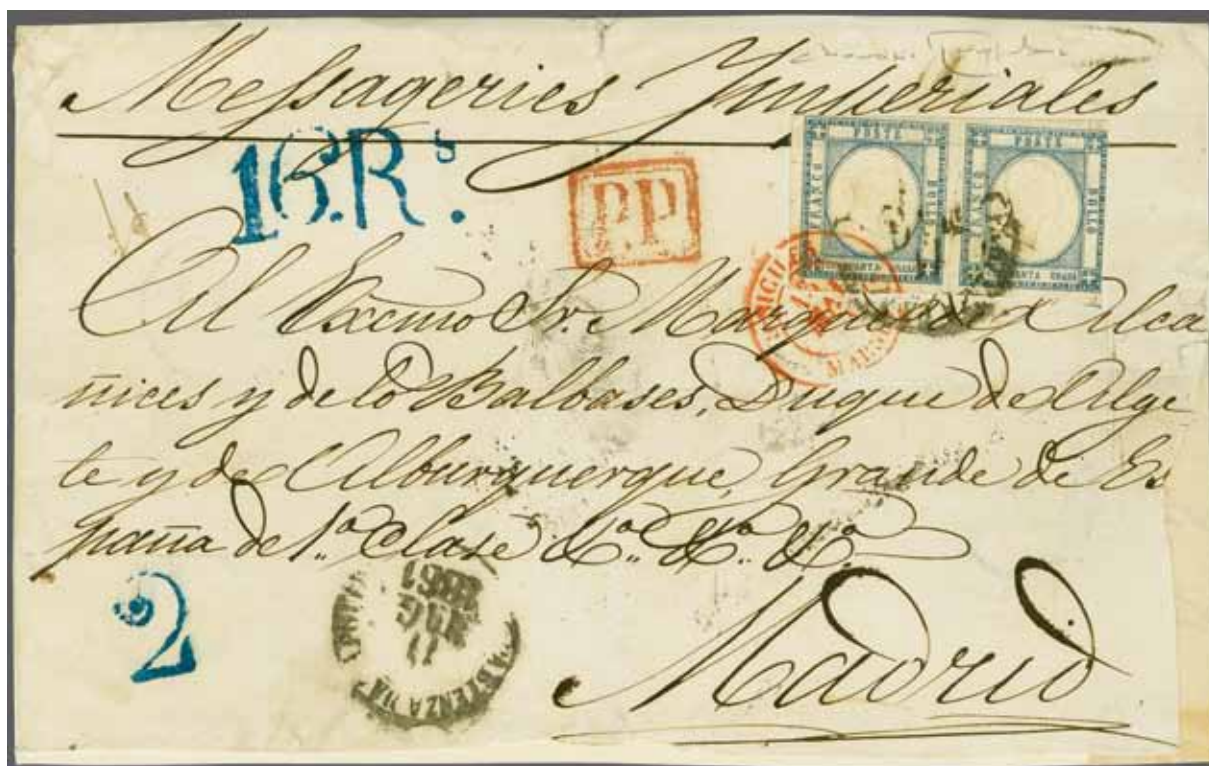 Messageries Imperiales
16.Rs.
P.P
POSTE POSTE
FRANCO BOLLO FRANCO BOLLO
Al Excmo Sr. Marques de Alca
ñices y de los Balbases, Duque de Alge
te y de Alburquerque, Grande de Es
paña de 1.a Clase &a. &a. &a.
2
11
MAG
1861
Madrid